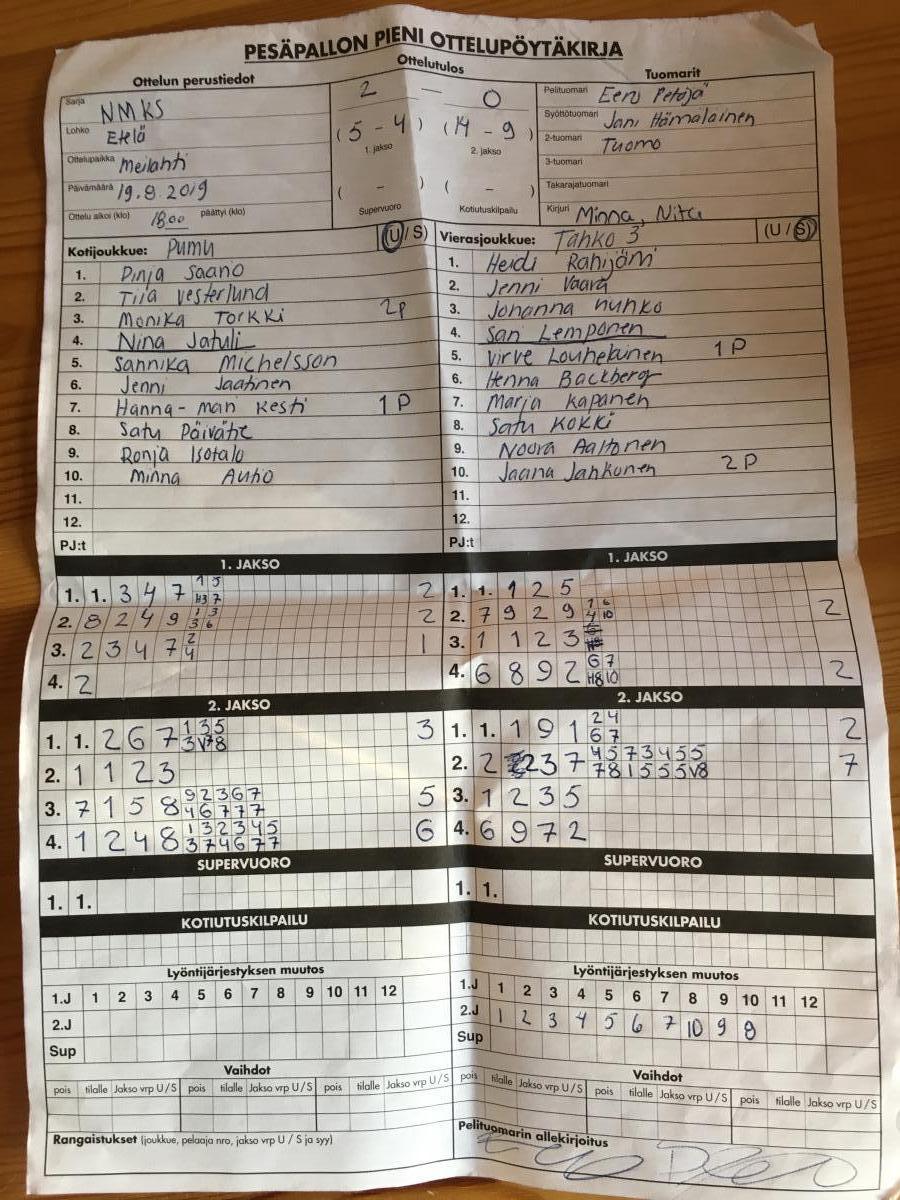 PESÄPALLON PIENI OTTELUPÖYTÄKIRJA
Ottelun perustiedot
Sarja NMKS
Lohko Etelä
Ottelupaikka Meilahti
Päivämäärä 19.8.2019
Ottelu alkoi (klo) 18.00 päättyi (klo)
Ottelutulos
2 — 0
( 5 - 4 ) ( 14 - 9 )
1. jakso 2. jakso
( - ) ( - )
Supervuoro Kotiutuskilpailu
Tuomarit
Pelituomari Eero Petäjä
Syöttötuomari Jani Hämäläinen
2-tuomari Tuomo
3-tuomari
Takarajatuomari
Kirjuri Minna, Nita
Kotijoukkue: Pumu (U/S)
1. Pinja Saano
2. Tiia Vesterlund
3. Monika Torkki 2P
4. Nina Jatuli
5. Sannika Michelsson
6. Jenni Jaatinen
7. Hanna-Mari Kesti 1P
8. Satu
9. Ronja Isotalo
10. Minna Autio
11.
12.
PJ:t
Vierasjoukkue: Tahko 3 (U/S)
1. Heidi Rahijärvi
2. Jenni Vaara
3. Johanna
4. Sari Lemponen
5. Virve Louhelainen 1P
6. Henna Backberg
7. Marja Kapanen
8. Satu Kokki
9. Noora Aaltonen
10. Jaana Jahkonen 2P
11.
12.
PJ:t
1. JAKSO
1. 1. 3 4 7 1 5 2
H3 7
2. 8 2 4 9 1 3 2
3 6
3. 2 3 4 7 2 1
4
4. 2
1. JAKSO
1. 1. 1 2 5
2. 7 9 2 9 1 6 2
4 10
3. 1 1 2 3
4. 6 8 9 2 6 7 2
H8 10
2. JAKSO
1. 1. 2 6 7 1 3 5 3
3 V7 8
2. 1 1 2 3
3. 7 1 5 8 9 2 3 6 7 5
4 6 7 7 7
4. 1 2 4 8 1 3 2 3 4 5 6
3 7 4 6 7 7
2. JAKSO
1. 1. 1 9 1 2 4 2
6 7
2. 2 2 3 7 4 5 7 3 4 5 5 7
7 8 1 5 5 5 V8
3. 1 2 3 5
4. 6 9 7 2
SUPERVUORO
1. 1.
SUPERVUORO
1. 1.
KOTIUTUSKILPAILU
KOTIUTUSKILPAILU
Lyöntijärjestyksen muutos
1.J 1 2 3 4 5 6 7 8 9 10 11 12
2.J
Sup
Lyöntijärjestyksen muutos
1.J 1 2 3 4 5 6 7 8 9 10 11 12
2.J 1 2 3 4 5 6 7 10 9 8
Sup
Vaihdot
pois tilalle Jakso vrp U/S pois tilalle Jakso vrp U/S pois tilalle Jakso vrp U/S
Vaihdot
pois tilalle Jakso vrp U/S pois tilalle Jakso vrp U/S pois tilalle Jakso vrp U/S
Rangaistukset (joukkue, pelaaja nro, jakso vrp U / S ja syy)
Pelituomarin allekirjoitus